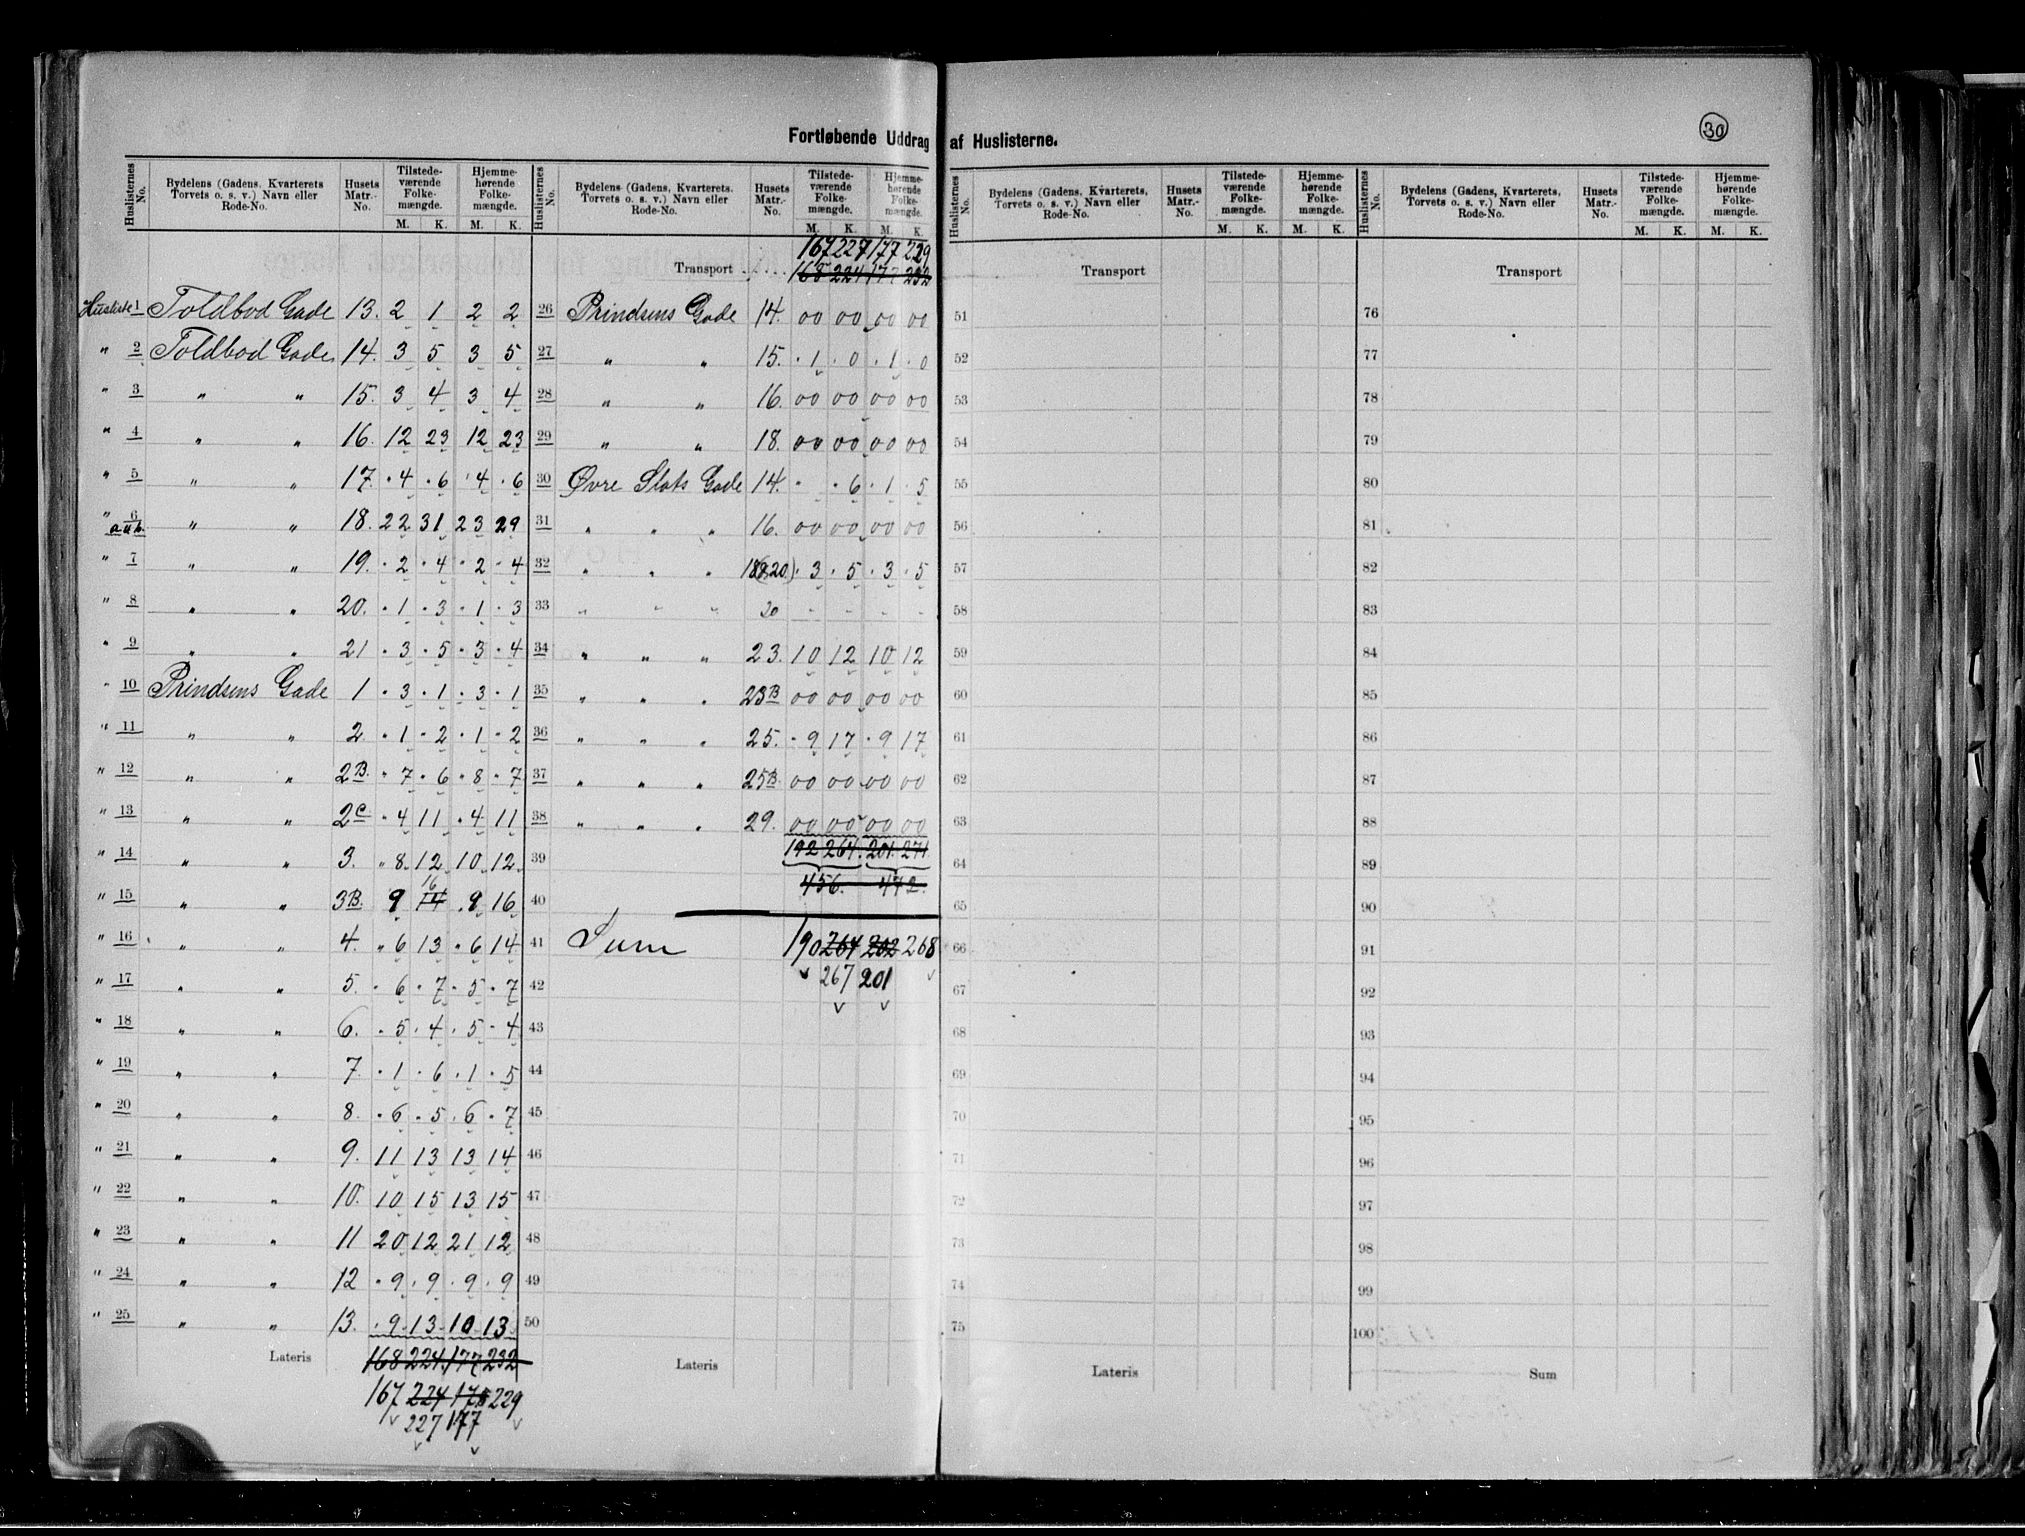 Fortløbende Uddrag af Huslisterne.
30
Huslisternes No. | Bydelens (Gadens, Kvarterets, Torvets o. s. v.) Navn eller Rode-No. | Husets Matr.-No. | Tilstedeværende Folkemængde. M. K. | Hjemmehørende Folkemængde. M. K.
Husliste 1 Toldbod Gade 13. 2 1 2 2
" 2 Toldbod Gade 14. 3 5 3 5
" 3 " " 15. 3 4 3 4
" 4 " " 16. 12 23 12 23
" 5 " " 17. 4 6 4 6
" 6 a & b. " " 18. 22 31 23 29
" 7 " " 19. 2 4 2 4
" 8 " " 20. 1 3 1 3
" 9 " " 21 3 5 3 4
" 10 Prindsens Gade 1 3 1 3 1
" 11 " " 2. 1 2 1 2
" 12 " " 2B. 7 6 8 7
" 13 " " 2C 4 11 4 11
" 14 " " 3. 8 12 10 12
" 15 " " 3B. 9 14 16 9 16
" 16 " " 4. 6 13 6 14
" 17 " " 5. 6 7 5 7
" 18 " " 6. 5 4 5 4
" 19 " " 7. 1 6 1 5
" 20 " " 8. 6 5 6 7
" 21 " " 9. 11 13 13 14
" 22 " " 10. 10 15 13 15
" 23 " " 11 20 12 21 12
" 24 " " 12 9 9 9 9
" 25 " " 13. 9 13 10 13
Lateris 168 224 177 232
167 224 178 229
227 177
Huslisternes No. | Bydelens (Gadens, Kvarterets, Torvets o. s. v.) Navn eller Rode-No. | Husets Matr.-No. | Tilstedeværende Folkemængde. M. K. | Hjemmehørende Folkemængde. M. K.
167 227 177 229
Transport 168 224 177 232
26 Prindsens Gade 14. 00 00 00 00
27 " " 15. 1 0 1 0
28 " " 16. 00 00 00 00
29 " " 18. 00 00 00 00
30 Øvre Slots Gade 14. " 6 1 5
31 " " " 16. 00 00 00 00
32 " " " 18(&20.) 3 5 3 5
33 " " " 20 - - - -
34 " " " 23. 10 12 10 12
35 " " " 23B 00 00 00 00
36 " " " 25. 9 17 9 17
37 " " " 25B. 00 00 00 00
38 " " " 29. 00 00 00 00
39 192 264. 201. 271
456. 472.
40
41 Sum 190 264 202 268
267 201
42
43
44
45
46
47
48
49
50
Lateris
Huslisternes No. | Bydelens (Gadens, Kvarterets, Torvets o. s. v.) Navn eller Rode-No. | Husets Matr.-No. | Tilstedeværende Folkemængde. M. K. | Hjemmehørende Folkemængde. M. K.
Transport
51
52
53
54
55
56
57
58
59
60
61
62
63
64
65
66
67
68
69
70
71
72
73
74
75
Lateris
Huslisternes No. | Bydelens (Gadens, Kvarterets, Torvets o. s. v.) Navn eller Rode-No. | Husets Matr.-No. | Tilstedeværende Folkemængde. M. K. | Hjemmehørende Folkemængde. M. K.
Transport
76
77
78
79
80
81
82
83
84
85
86
87
88
89
90
91
92
93
94
95
96
97
98
99
100
Sum